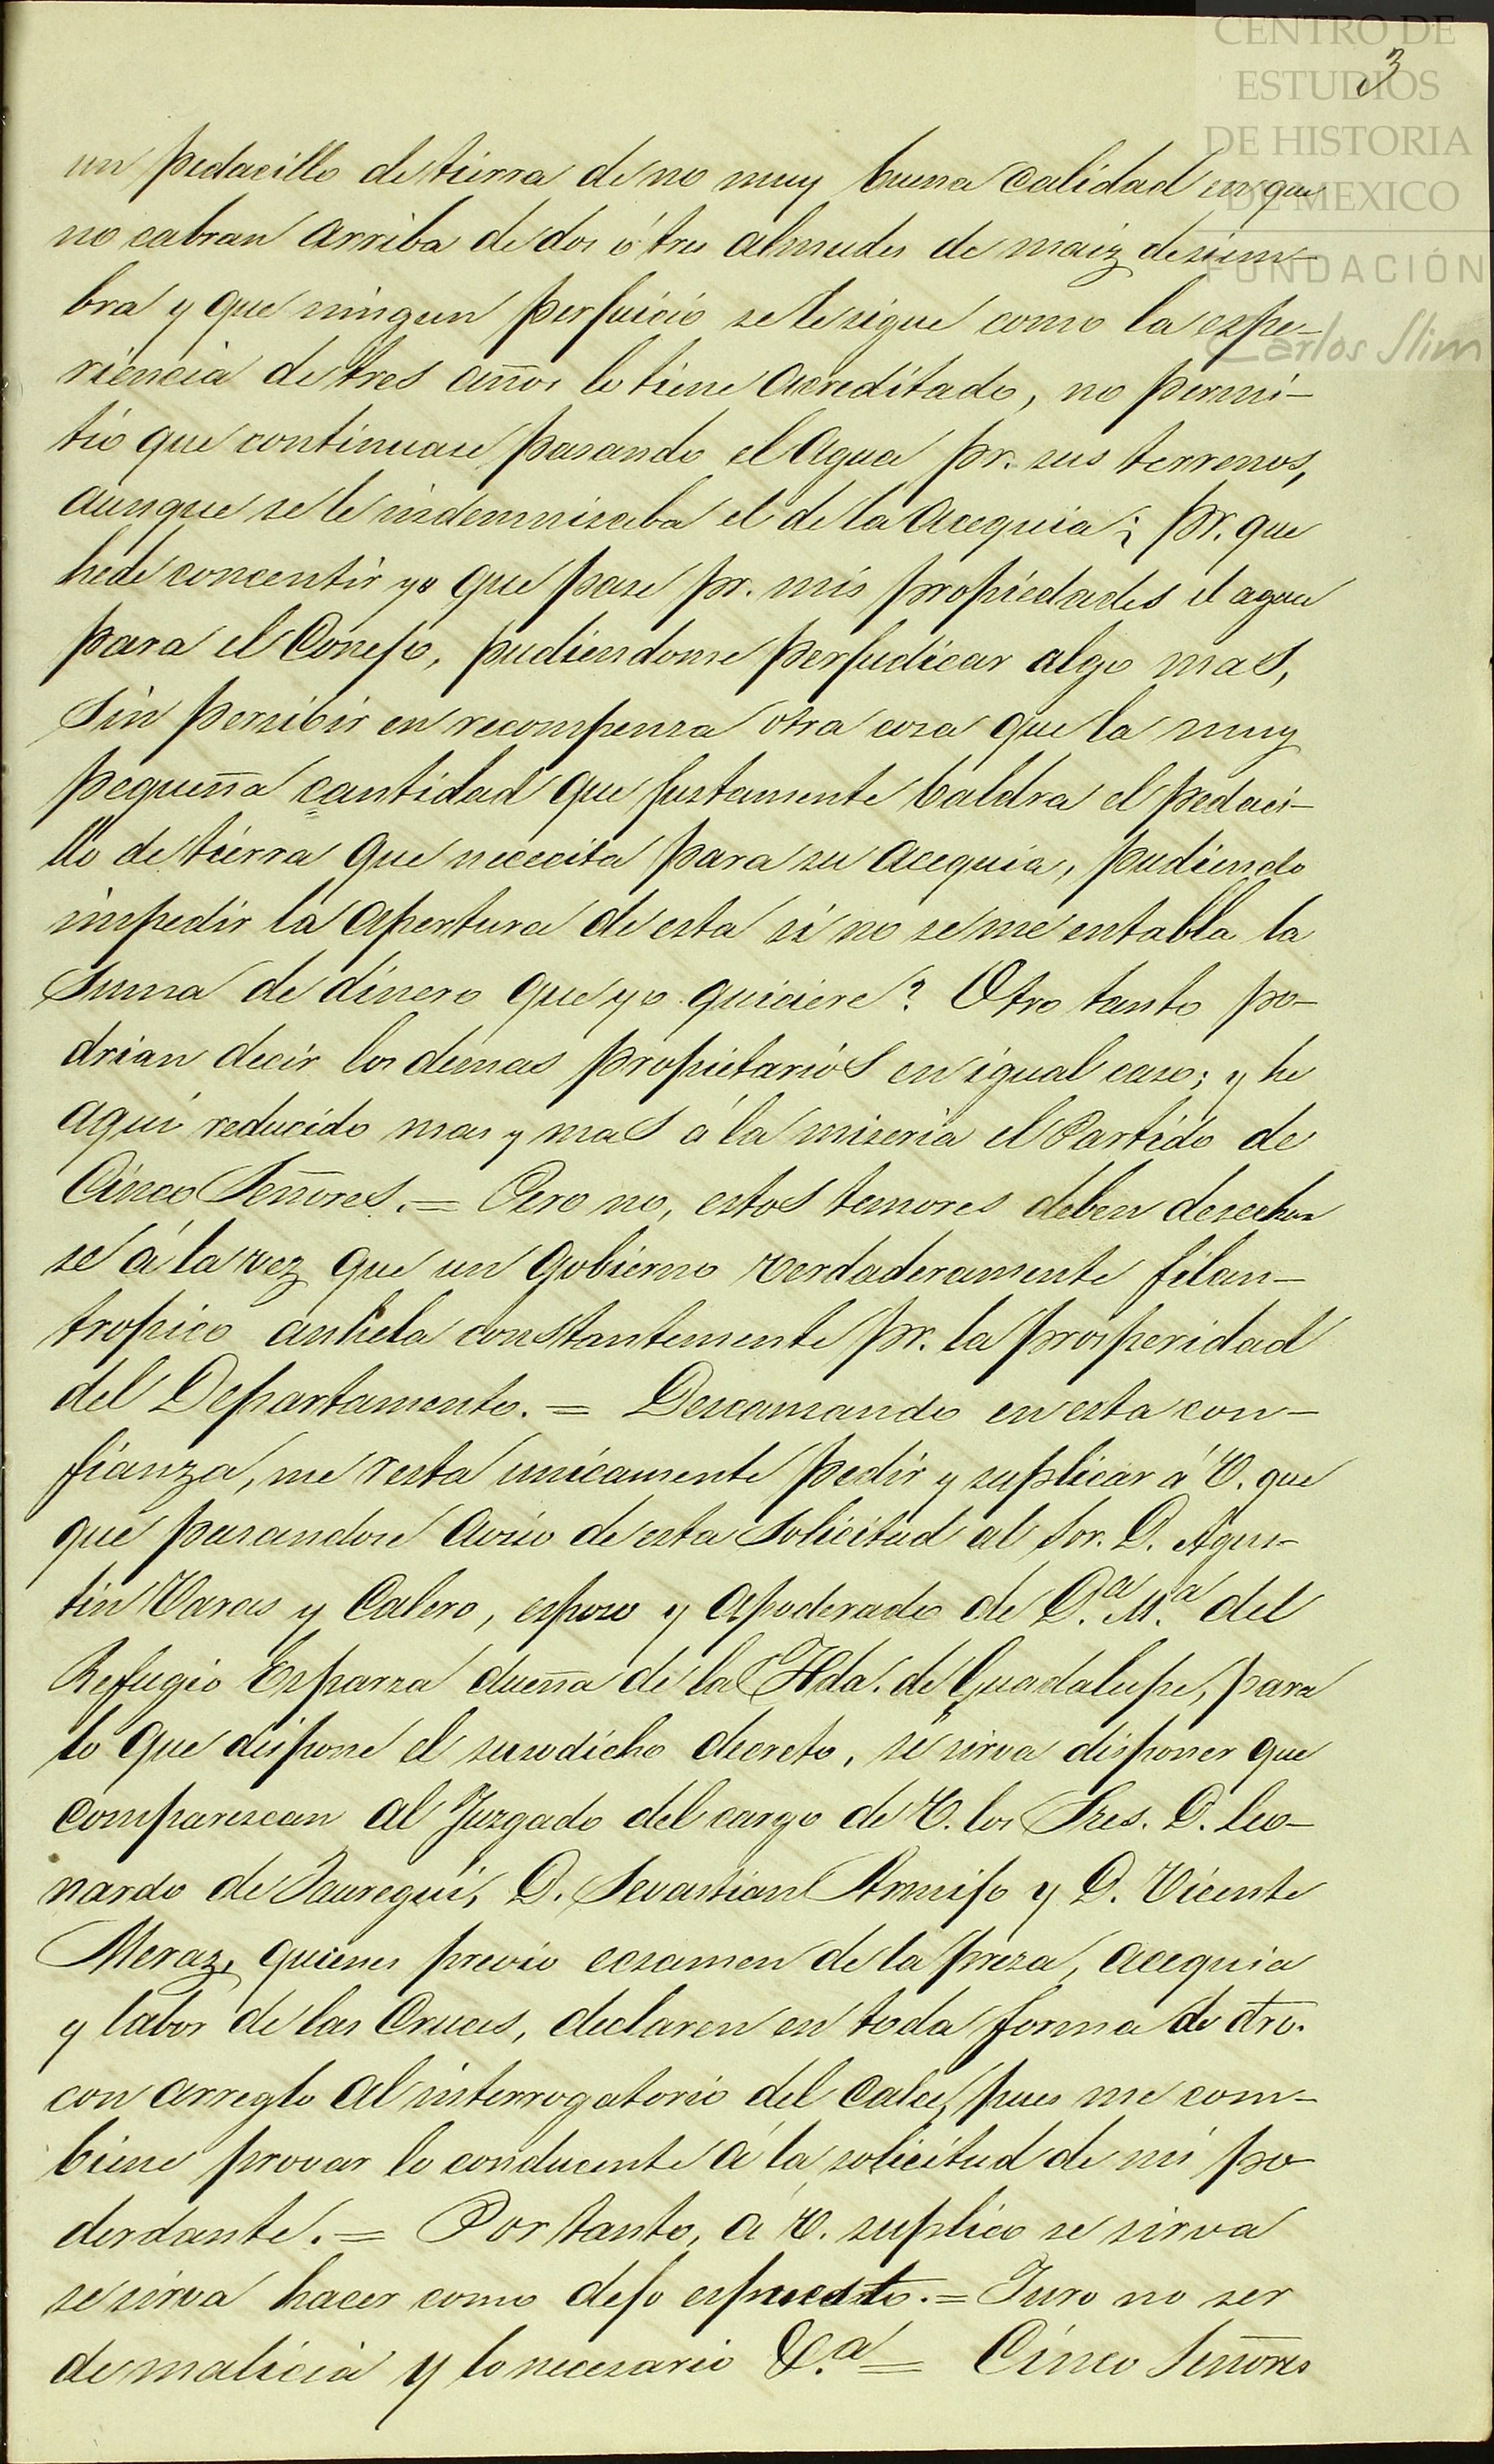 CENTRO DE
ESTUDIOS
DE HISTORIA
DE MEXICO
FUNDACIÓN
Carlos Slim
3
un pedacillo de tierra de no muy buena calidad en que
no cabran arriba de dos ó tres almudes de maiz de siem-
bra y que ningun perjuicio se le sigue como la espe-
riencia de tres años lo tiene acreditado, no permi-
tió que continuase pasando el agua pr. sus terrenos,
aunque se le indemnisaba el de la acequia; pr. que
hede concentir yo que pase pr. mis propiedades el agua
para el Conejo, pudiendome perjudicar algo mas,
sin persibir en recompensa otra cosa que la muy
pequeña cantidad que justamente baldra el pedaci-
llo de tierra que nececita para su acequia, pudiendo
impedir la apertura de esta si no se me entabla la
suma de dinero que yo quiciere? Otro tanto po-
drian decir los demas propietarios en igual caso; y he
aqui reducido mas y mas á la miseria el Partido de
Cinco Señores. = Pero no, estos temores deben desechar
se á la vez que un Gobierno verdaderamente filan-
tropico anhela constantemente pr. la prosperidad
del Departamento. = Descansando en esta con-
fianza, me resta unicamente pedir y suplicar á V. que
que pasandose aviso de esta solicitud al Sor. D. Agus-
tin Varas y Calero, esposo y apoderado de D.ª M.ª del
Refugio Esparza dueña de la Hda. de Guadalupe, para
lo que dispone el susodicho decreto, se sirva disponer que
comparescan al Juzgado del cargo de V. los Sres. D. Leo-
nardo de Jauregui, D. Sevastian Armijo y D. Vicente
Meraz, quienes previo ecsamen de la presa, acequia
y labor de las Cruces, declaren en toda forma de dro.
con arreglo al interrogatorio del calce, pues me com-
biene provar lo conducente á la solicitud de mi po-
derdante. = Por tanto, á V. suplico se sirva
se sirva hacer como dejo espuesto. = Juro no ser
de malicia y lo necesario &.ª = Cinco Señores